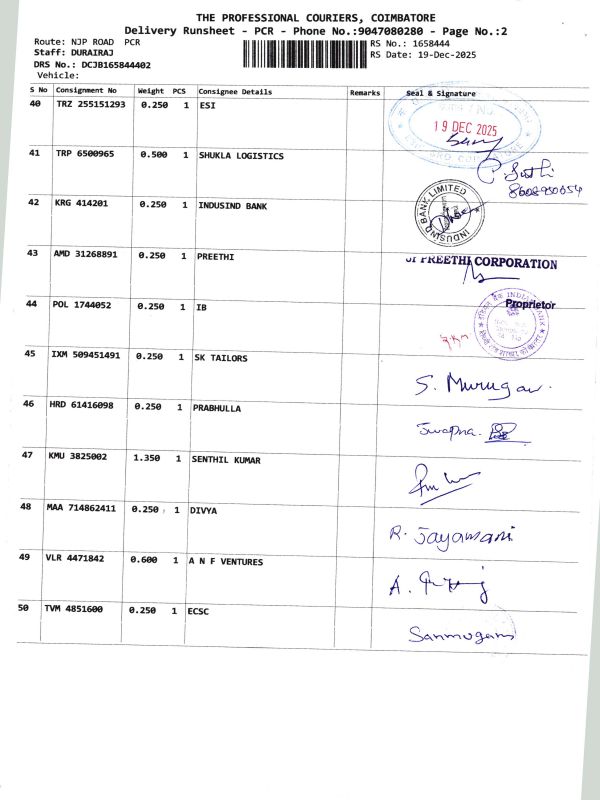 THE PROFESSIONAL COURIERS, COIMBATORE
Delivery Runsheet - PCR - Phone No.:9047080280 - Page No.:2
Route: NJP ROAD PCR
RS No.: 1658444
Staff: DURAIRAJ
RS Date: 19-Dec-2025
DRS No.: DCJB165844402
Vehicle:
S No Consignment No Weight PCS Consignee Details Remarks Seal & Signature
40 TRZ 255151293 0.250 1 ESI
19 DEC 2025
41 TRP 6500965 0.500 1 SHUKLA LOGISTICS
42 KRG 414201 0.250 1 INDUSIND BANK
INDUSIND BANK LIMITED
43 AMD 31268891 0.250 1 PREETHI
PREETHI CORPORATION
Proprietor
44 POL 1744052 0.250 1 IB
45 IXM 509451491 0.250 1 SK TAILORS
S. Murugan.
46 HRD 61416098 0.250 1 PRABHULLA
Swapna.
47 KMU 3825002 1.350 1 SENTHIL KUMAR
48 MAA 714862411 0.250 1 DIVYA
R. Jayamani
49 VLR 4471842 0.600 1 A N F VENTURES
50 TVM 4851600 0.250 1 ECSC
Sanmugam